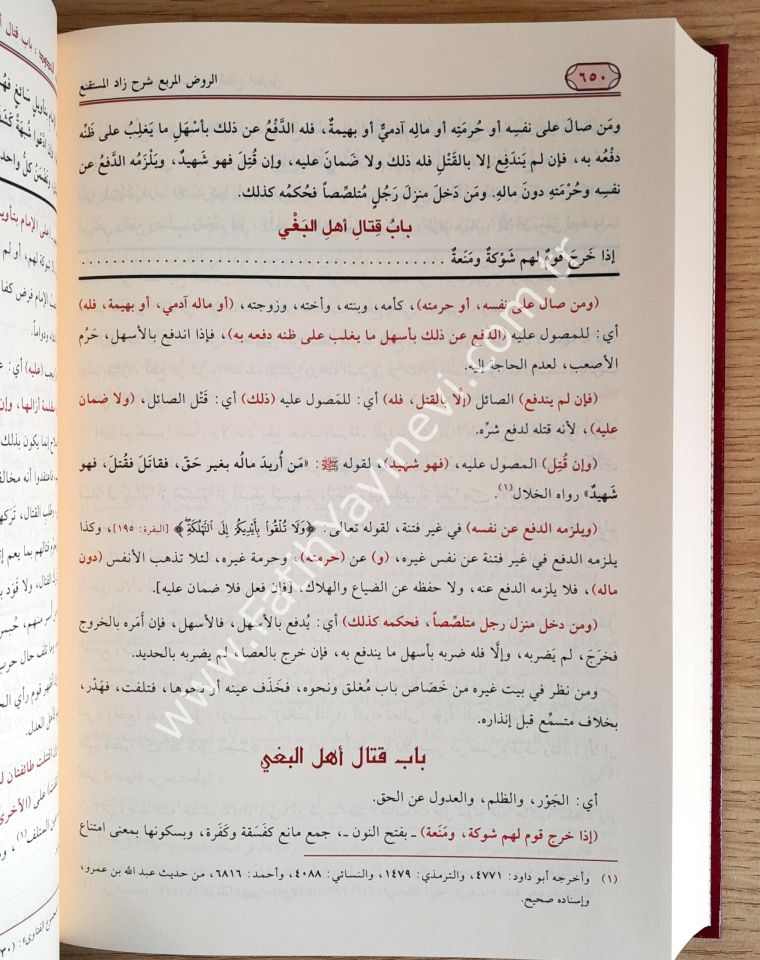 ٦٥٠
الروض المربع شرح زاد المستقنع
ومَن صالَ على نفسِه أو حُرمَتِه أو مالِه آدميٌّ أو بهيمةٌ، فله الدَّفْعُ عن ذلك بأسْهَلِ ما يَغلِبُ على ظَنِّه
دفْعُه به، فإن لم يَندفِع إلا بالقَتْلِ فله ذلك ولا ضَمانَ عليه، وإن قُتِلَ فهو شَهيدٌ، ويَلْزَمُه الدَّفعُ عن
نفسِه وحُرْمَتِه دونَ مالِهِ. ومَن دَخلَ منزلَ رَجُلٍ مُتلصِّصاً فحُكمُه كذلك.
بابُ قِتالِ أهلِ البَغْي
إذا خَرجَ قومٌ لهم شَوْكةٌ ومَنَعةٌ
(ومن صال على نفسه، أو حرمته)، كأمه، وبنته، وأخته، وزوجته، (أو ماله آدمي، أو بهيمة، فله)
أي: للمصول عليه (الدفع عن ذلك بأسهل ما يغلب على ظنه دفعه به)، فإذا اندفع بالأسهل، حَرُم
الأصعب، لعدم الحاجة إليه.
(فإن لم يندفع) الصائل (إلَّا بالقتل، فله) أي: للمَصول عليه (ذلك) أي: قَتْل الصائل، (ولا ضمان
عليه)، لأنه قتله لدفع شرِّه.
(وإن قُتِل) المصول عليه، (فهو شهيد)، لقوله ﷺ: «مَن أُريدَ مالُه بغير حَقّ، فقاتَلَ فقُتلَ، فهو
شَهيدٌ» رواه الخلال(١).
(ويلزمه الدفع عن نفسه) في غير فتنة، لقوله تعالى: ﴿وَلَا تُلْقُوا بِأَيْدِيكُمْ إِلَى التَّهْلُكَةِ﴾ [البقرة: ١٩٥]، وكذا
يلزمه الدفع في غير فتنة عن نفس غيره، (و) عن (حرمته)، وحرمة غيره، لئلا تذهب الأنفس (دون
ماله)، فلا يلزمه الدفع عنه، ولا حفظه عن الضياع والهلاك، [فإن فعل فلا ضمان عليه].
(ومن دخل منزل رجل متلصِّصاً، فحكمه كذلك) أي: يُدفع بالأسهل، فالأسهل، فإن أمَره بالخروج
فخرَجَ، لم يَضربه، وإلَّا فله ضربه بأسهل ما يندفع به، فإن خرج بالعصا، لم يضربه بالحديد.
ومن نظر في بيت غيره من خَصَاص باب مُغلق ونحوه، فخَذَف عينه أو نحوها، فتلفت، فهَدْر،
بخلاف متسمِّع قبل إنذاره.
باب قتال أهل البغي
أي: الجَوْر، والظلم، والعدول عن الحق.
(إذا خرج قوم لهم شوكة، ومَنَعة) ـ بفتح النون ـ، جمع مانع كفَسَقة وكَفَرة، وبسكونها بمعنى امتناع
(١) وأخرجه أبو داود: ٤٧٧١، والترمذي: ١٤٧٩، والنسائي: ٤٠٨٨، وأحمد: ٦٨١٦، من حديث عبد الله بن عمرو،
وإسناده صحيح.
www.FatihYayinevi.com.tr